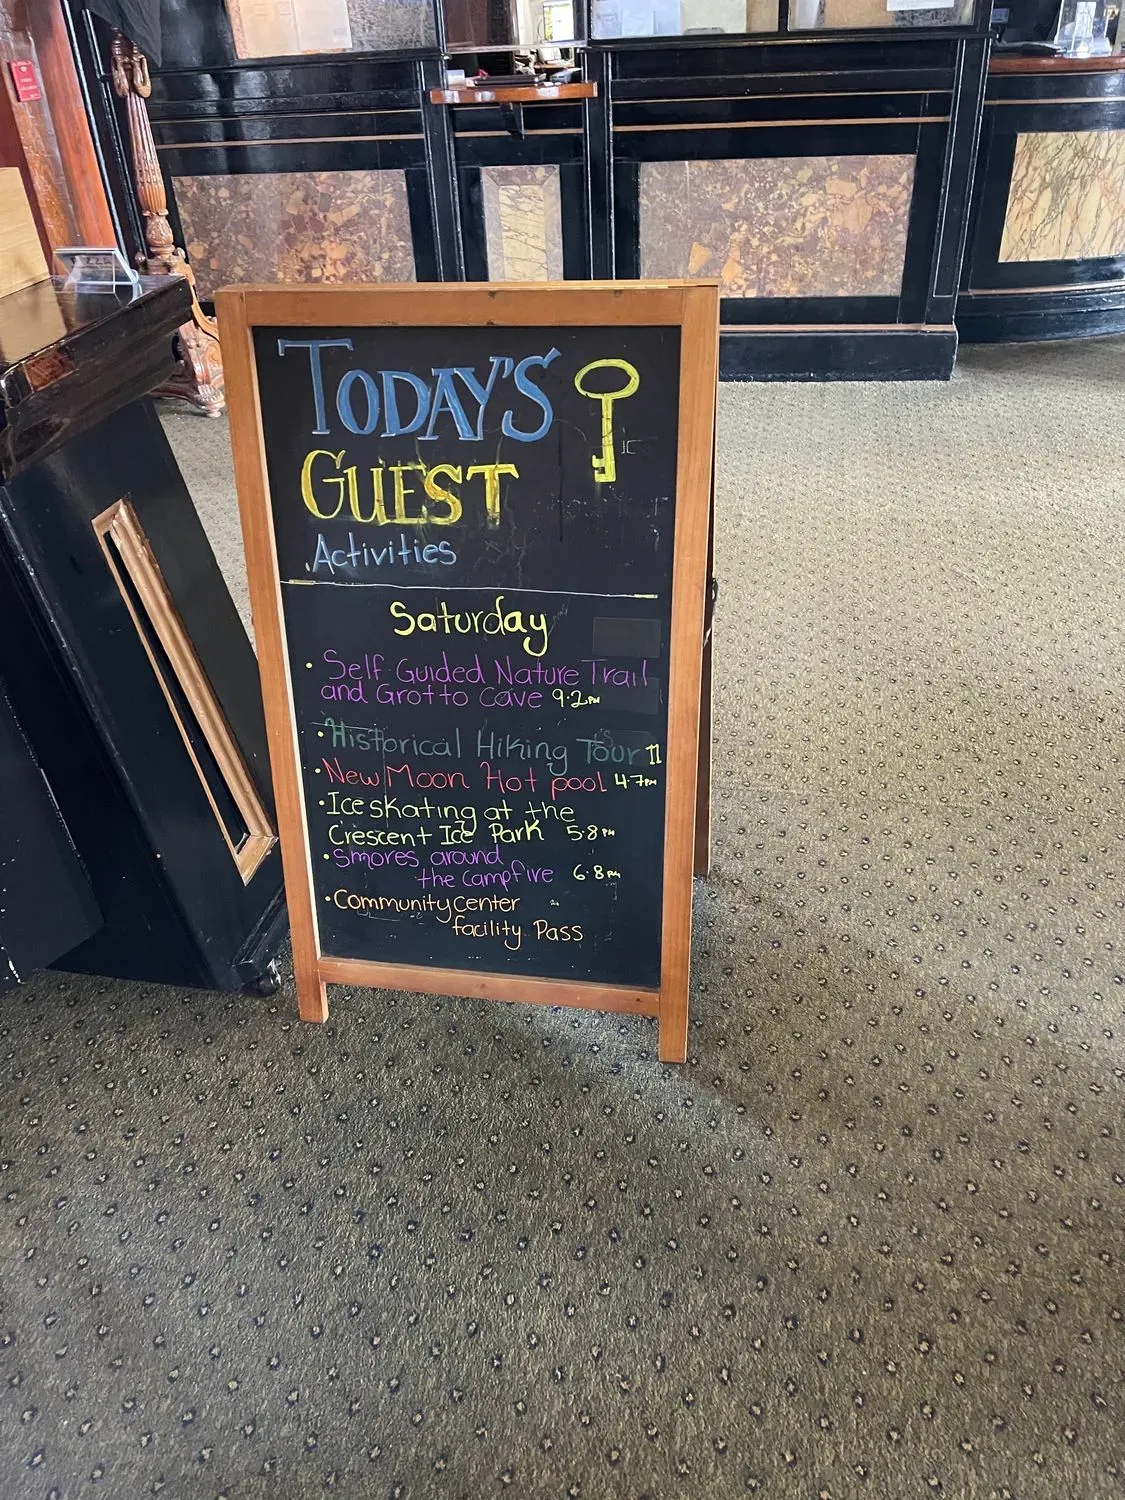 TODAY'S
GUEST
Activities
Saturday
• Self Guided Nature Trail
and Grotto Cave 9-2PM
• Historical Hiking Tour 11
• New Moon Hot pool 4-7PM
• Ice skating at the
Crescent Ice Park 5-8PM
• Smores around
the Campfire 6-8PM
• Community Center
facility Pass